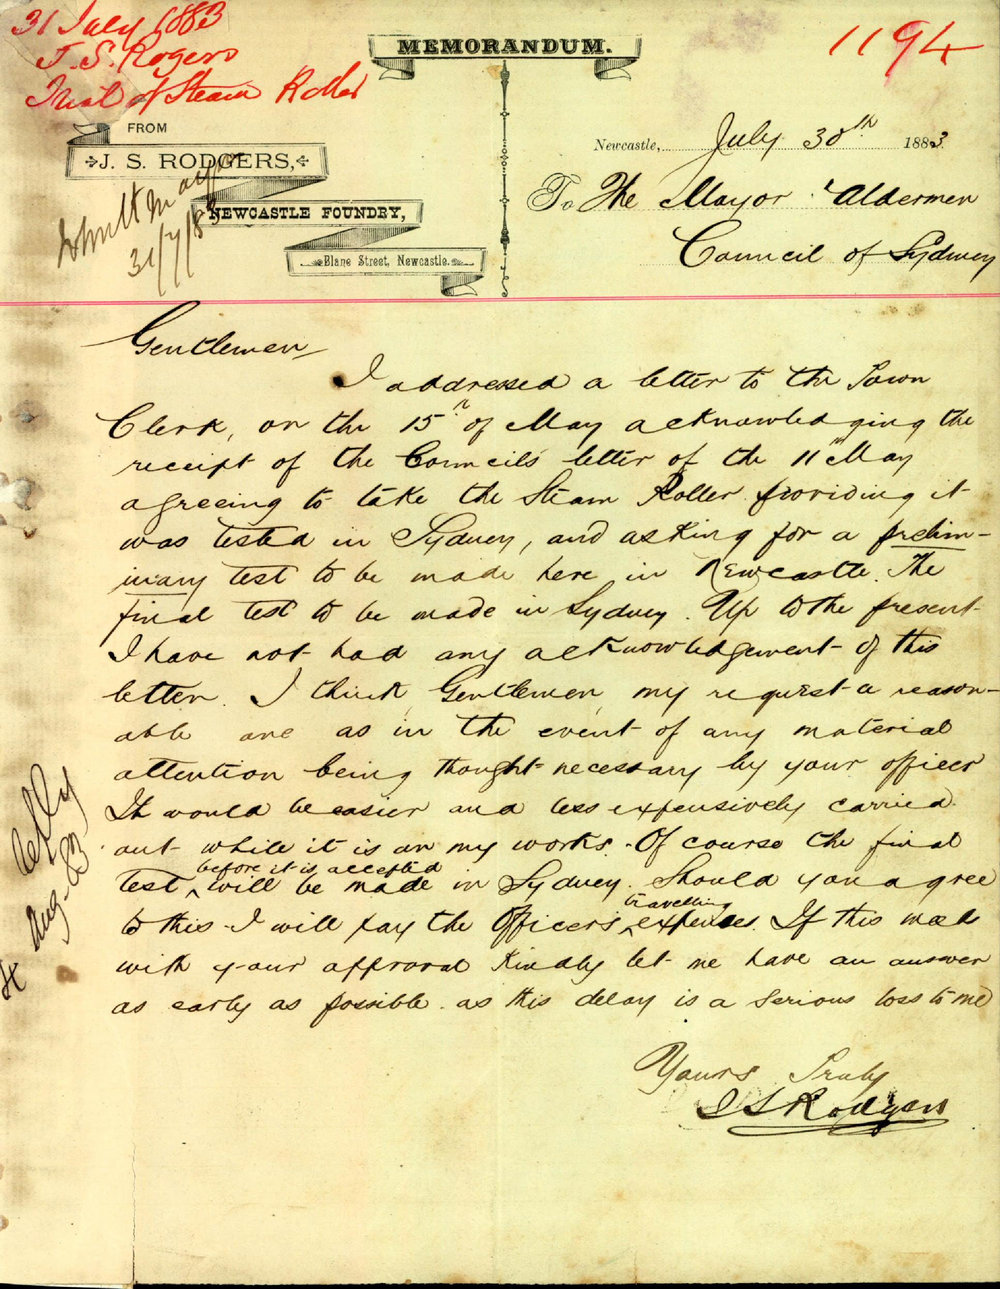 31 July 1883
J. S. Rogers
Trial of Steam Roller
1194
MEMORANDUM.
FROM
J. S. RODGERS,
NEWCASTLE FOUNDRY,
Blane Street, Newcastle.
31/7/83
Newcastle, July 30th 1883.
To The Mayor Aldermen
Council of Sydney
Gentlemen
I addressed a letter to the Town
Clerk, on the 15th of May acknowledging the
receipt of the Councils letter of the 11th May
agreeing to take the Steam Roller providing it
was tested in Sydney, and asking for a prelim-
inary test to be made here in Newcastle. The
final test to be made in Sydney. Up to the present
I have not had any acknowledgement of this
letter. I think Gentlemen, my request a reason-
able one as in the event of any material
attention being thought necessary by your officer
It would be easier and less expensively carried
out while it is on my works. Of course the final
test before it is accepted will be made in Sydney. Should you agree
to this I will pay the Officer's travelling expenses. If this meets
with your approval Kindly let me have an answer
as early as possible. as this delay is a serious loss to me
Yours Truly
J S Rodgers
Aug. 83